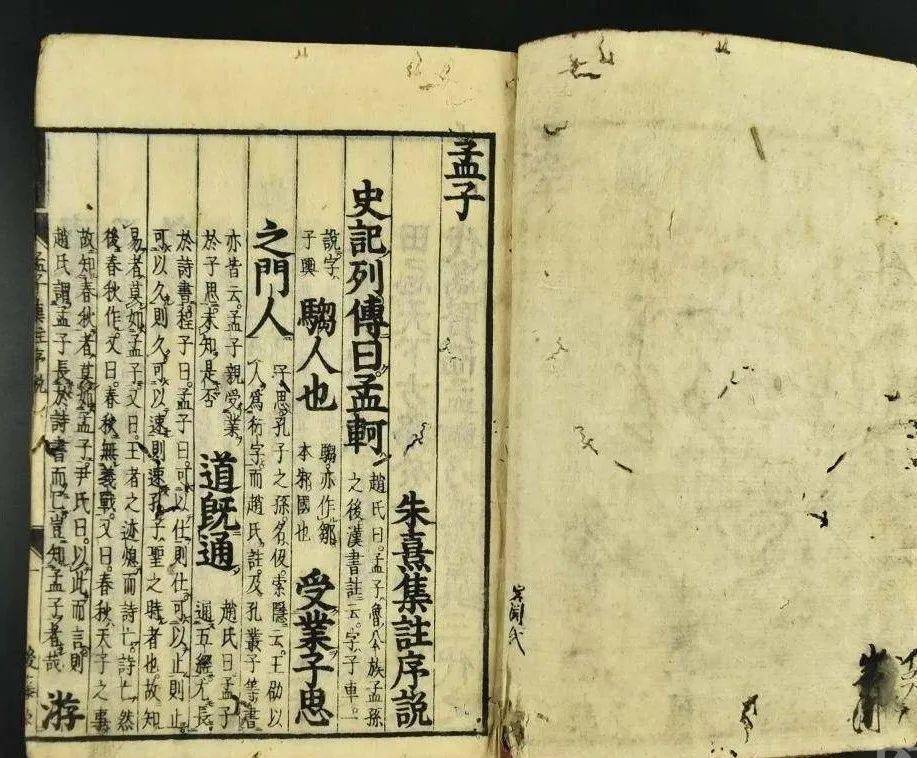 孟子
朱熹集註序說
史記列傳曰孟軻
趙氏曰孟子魯公族孟孫
之後漢書註云字子車一
說字
子輿
騶人也
騶亦作鄒
本邾國也
受業子思
之門人
子思孔子之孫名伋索隱云王劭以
人爲衍字而趙氏註及孔叢子等書
亦皆云孟子親受業
於子思未知是否
道旣通
趙氏曰孟子
通五經尤長
於詩書程子曰孟子曰可以仕則仕可以止則止
可以久則久可以速則速孔子聖之時者也故知
易者莫如孟子又曰王者之迹熄而詩亡詩亡然
後春秋作又曰春秋無義戰又曰春秋天子之事
故知春秋者莫如孟子尹氏曰以此而言則
趙氏謂孟子長於詩書而已豈知孟子者哉
游
孟子集註序說